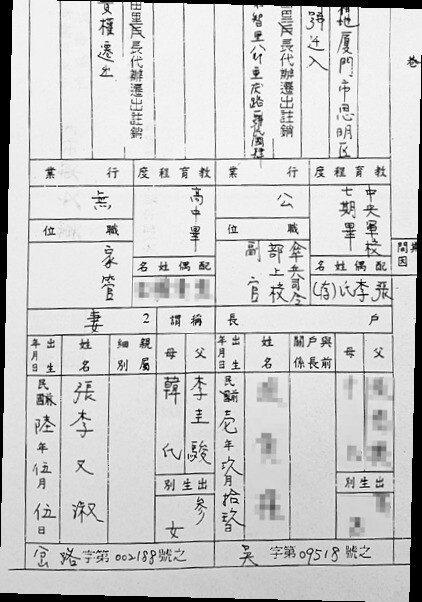 卷
地厦門市思明区
號迁入
里長代辦遷出註銷
智里公街重慶路
田里長代辦遷出註銷
權遷出
教育程度
中央軍校七期畢
行業
公
職位
傘兵司令部上校副官
配偶姓名
張李氏(存)
教育程度
高中畢
行業
無
職位
家管
配偶姓名
戶長
父
母
與戶長前關係
姓名
出生年月日
民國前壹年玖月拾玖日
出生別
稱謂
2
妻
父
李圭駿
母
韓氏
出生別
參女
親屬細別
姓名
張李又淑
出生年月日
民國前陸年伍月伍日
吳字第09518號之
岔路字第002188號之